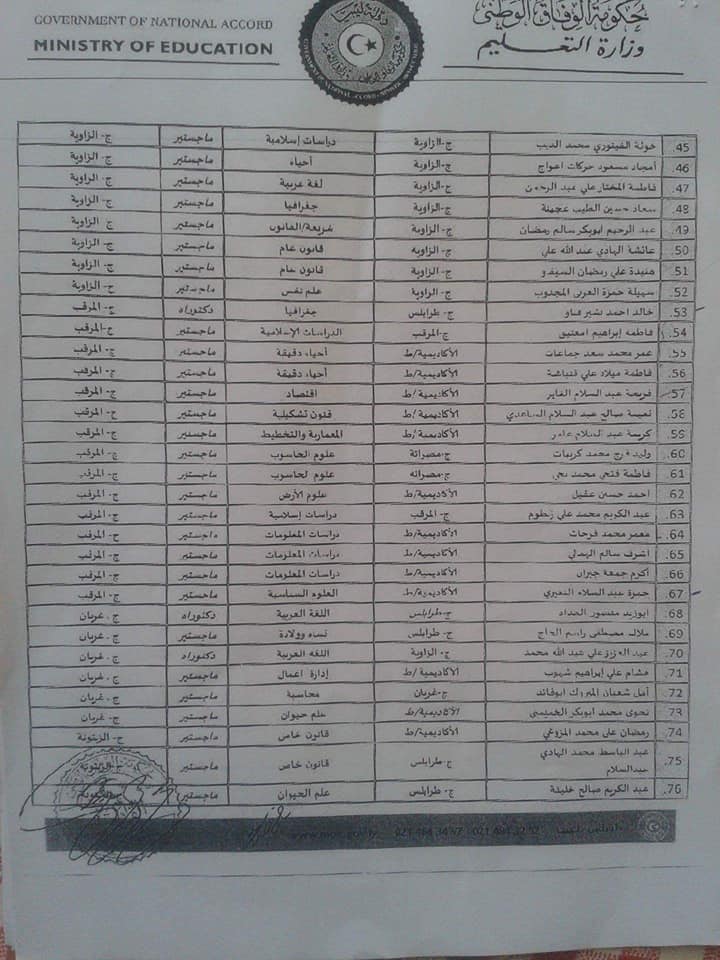 GOVERNMENT OF NATIONAL ACCORD
MINISTRY OF EDUCATION
حكومة الوفاق الوطني
وزارة التعليم
45. خولة الفيتوري محمد الديب ج- الزاوية دراسات إسلامية ماجستير ج- الزاوية
46. أمجاد مسعود حركات اعواج ج- الزاوية أحياء ماجستير ج- الزاوية
47. فاطمة المختار علي عبد الرحمن ج- الزاوية لغة عربية ماجستير ج- الزاوية
48. سعاد حسين الطيب عجينة ج- الزاوية جغرافيا ماجستير ج- الزاوية
49. عبد الرحيم ابوبكر سالم رمضان ج- الزاوية شريعة/القانون ماجستير ج- الزاوية
50. عائشة الهادي عبد الله علي ج- الزاوية قانون عام ماجستير ج- الزاوية
51. هنيدة علي رمضان ج- الزاوية قانون عام ماجستير ج- الزاوية
52. سهيلة حمزة العربي المجدوب ج- الزاوية علم نفس ماجستير ج- الزاوية
53. خالد احمد بشير ج- طرابلس جغرافيا دكتوراه ج- المرقب
54. فاطمه إبراهيم امعتيق ج-المرقب الدراسات الإسلامية ماجستير ج-المرقب
55. عمر محمد سعد جماعات الأكاديمية/ط أحياء دقيقة ماجستير ج- المرقب
56. فاطمة ميلاد علي الأكاديمية/ط أحياء دقيقة ماجستير ج- المرقب
57. فريحة عبد السلام الأكاديمية/ط اقتصاد ماجستير ج- المرقب
58. نعيمة صالح عبد السلام الأكاديمية/ط فنون تشكيلية ماجستير ج- المرقب
59. كريمة عبد السلام عامر الأكاديمية/ط المعمارية والتخطيط ماجستير ج- المرقب
60. وليد فرج محمد كريبات ج-مصراتة علوم الحاسوب ماجستير ج- المرقب
61. فاطمة فتحي محمد ج-مصراته علوم لحاسوب ماجستير ج- المرقب
62. احمد حسين عقيل الأكاديمية/ط علوم الأرض ماجستير ج- المرقب
63. عبد الكريم محمد علي زطوم ج- المرقب دراسات إسلامية ماجستير ج- المرقب
64. معمر محمد فرحات الأكاديمية/ط دراسات المعلومات ماجستير ج- المرقب
65. اشرف سالم الأكاديمية/ط دراسات المعلومات ماجستير ج- المرقب
66. أكرم جمعة جبران الأكاديمية/ط دراسات المعلومات ماجستير ج- المرقب
67. حمزة عبد السلام الأكاديمية/ط العلوم السياسية ماجستير ج- المرقب
68. ابوزيد منصور الحداد ج-طرابلس اللغة العربية دكتوراه ج. غريان
69. ملاك مصطفى راسم الحاج ج- طرابلس نساء وولادة ماجستير ج. غريان
70. عبد العزيز علي عبد الله محمد ج- الزاوية اللغه العربية دكتوراه ج. غريان
71. هشام علي إبراهيم شهوب الأكاديمية /ط إدارة اعمال ماجستير ج- غريان
72. أمل شعبان المبروك ابوقائد ج-غريان محاسبة ماجستير ج- غريان
73. نجوى محمد ابوبكر الأكاديمية/ط علم حيوان ماجستير ج- غريان
74. رمضان علي محمد المزوغي الأكاديمية/ط قانون خاص ماجستير ج- الزيتونة
75. عبد الباسط محمد الهادي عبدالسلام ج-طرابلس قانون خاص ماجستير ج- الزيتونة
76. عبد الكريم صالح خليفة ج- طرابلس علم الحيوان ماجستير